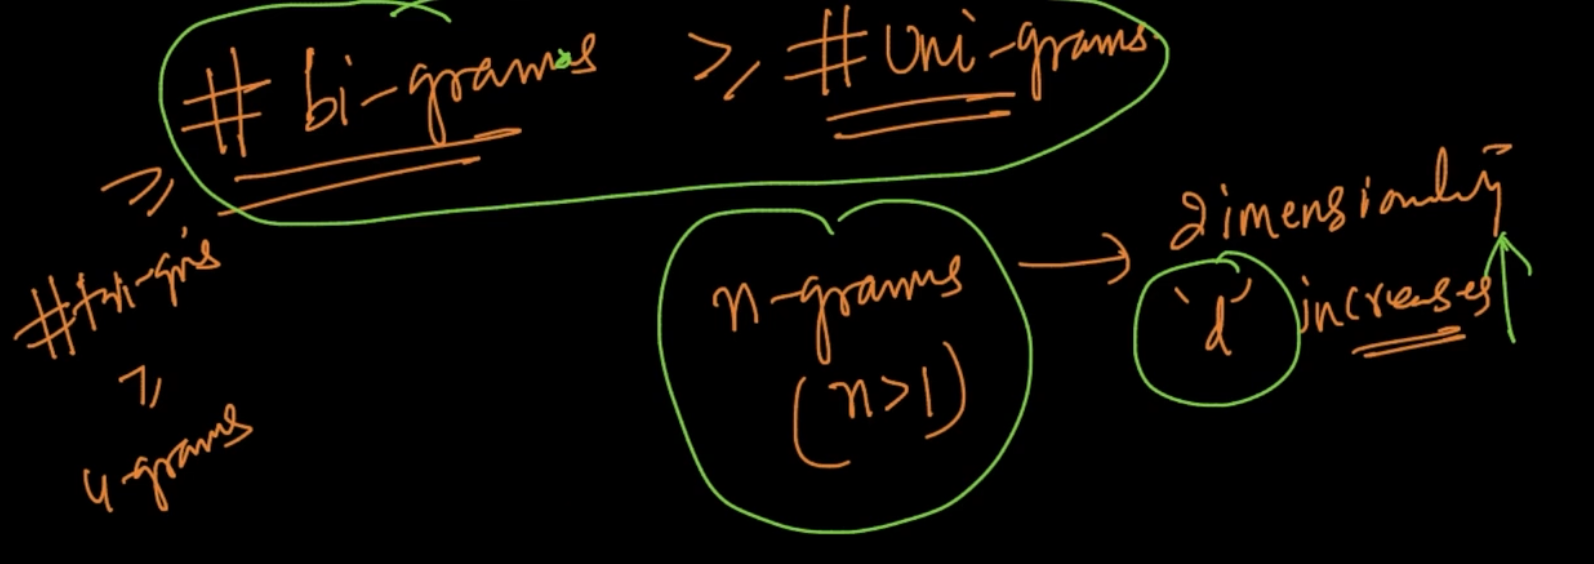 # bi-grams ≥ # uni-grams
≥
# tri-grs
≥
4-grams
n-grams
(n>1)
→ dimensionality
'd' increases ↑